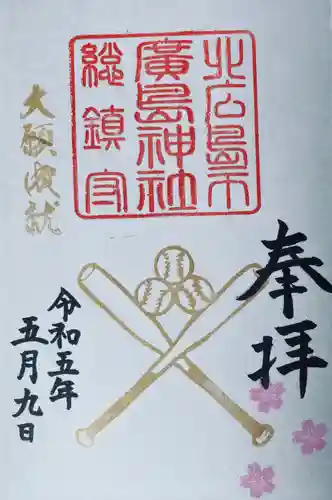 奉拝
北広島市
廣島神社
総鎮守
大願成就
令和五年
五月九日